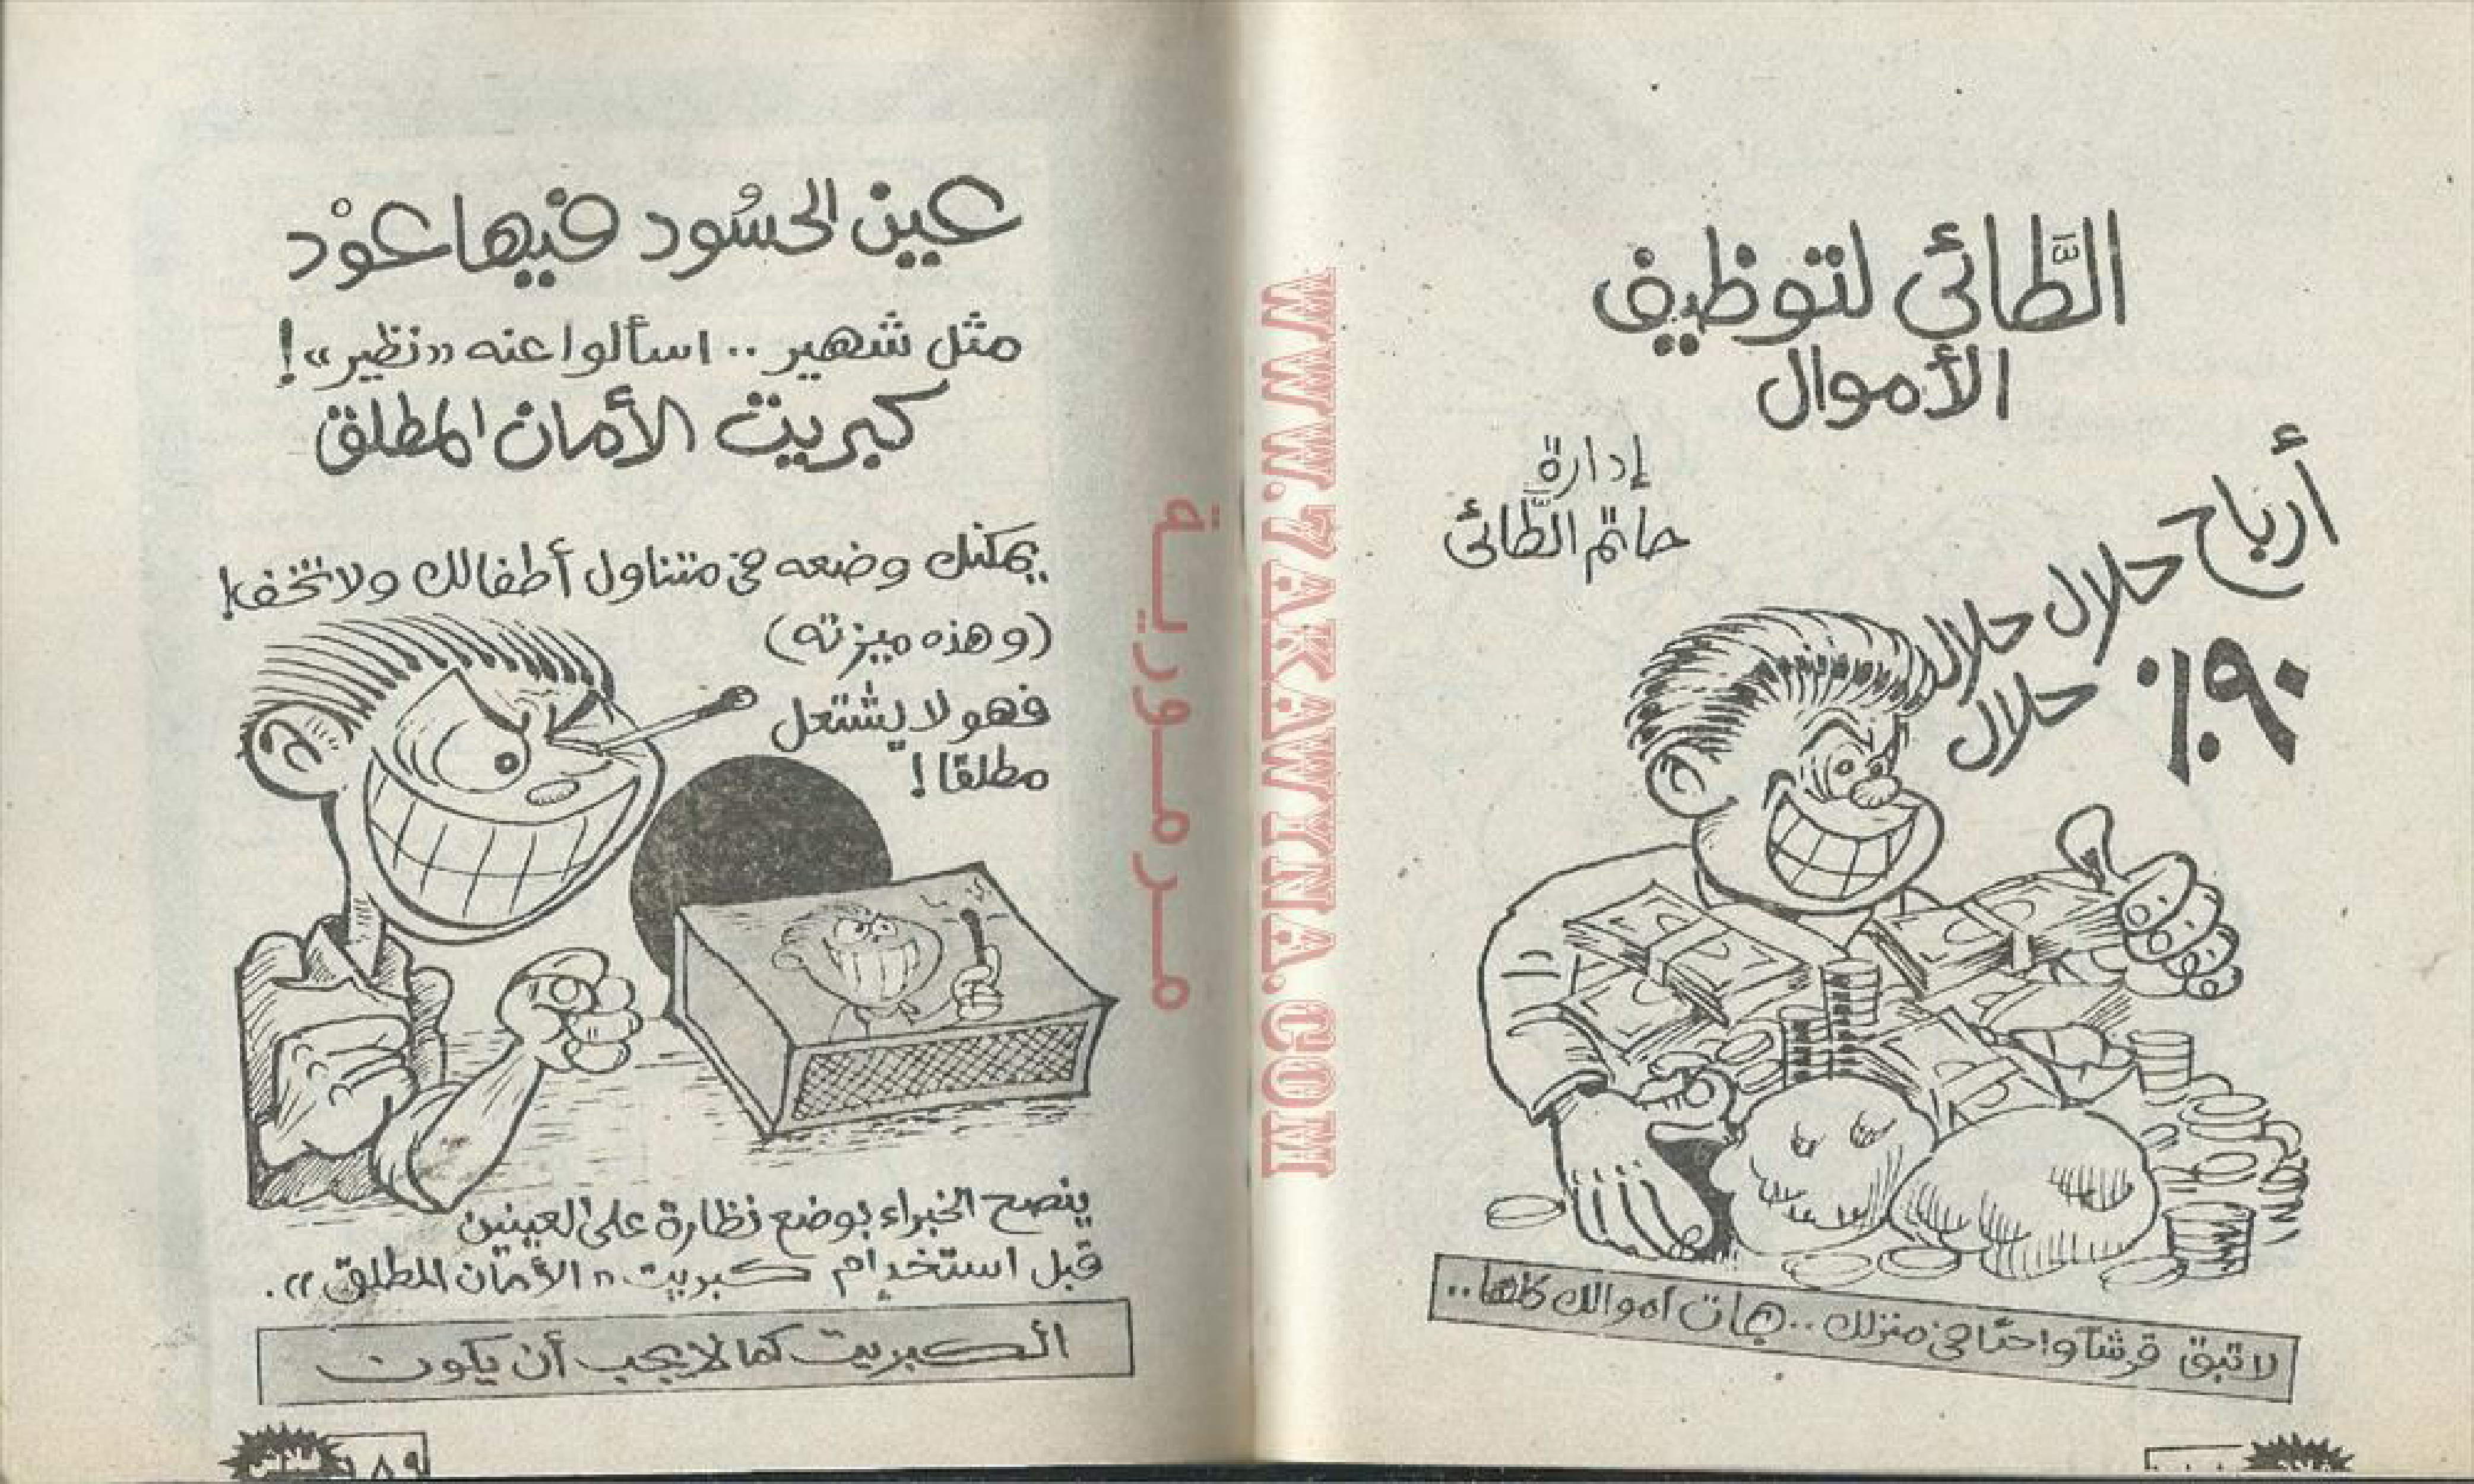 الطَّائي لتوظيف
الأموال
إدارة
حاتم الطَّائي
أرباح
حلال حلال
حلال
٩٠٪
لا تبق قرشًا واحدًا في منزلك .. هات أموالك كلها ..
عين الحسُود فيها عوْد
مثل شهير .. اسألوا عنه «نظير»!
كبريت الأمان المطلق
يمكنك وضعه في متناول أطفالك ولا تخف!
(وهذه ميزته)
فهو لا يشتعل
مطلقًا!
ينصح الخبراء بوضع نظارة على العينين
قبل استخدام كبريت «الأمان المطلق».
الكبريت كما لا يجب أن يكون
٨٩
مـرمـوريـة
WWW.7AKAWITNA.COM